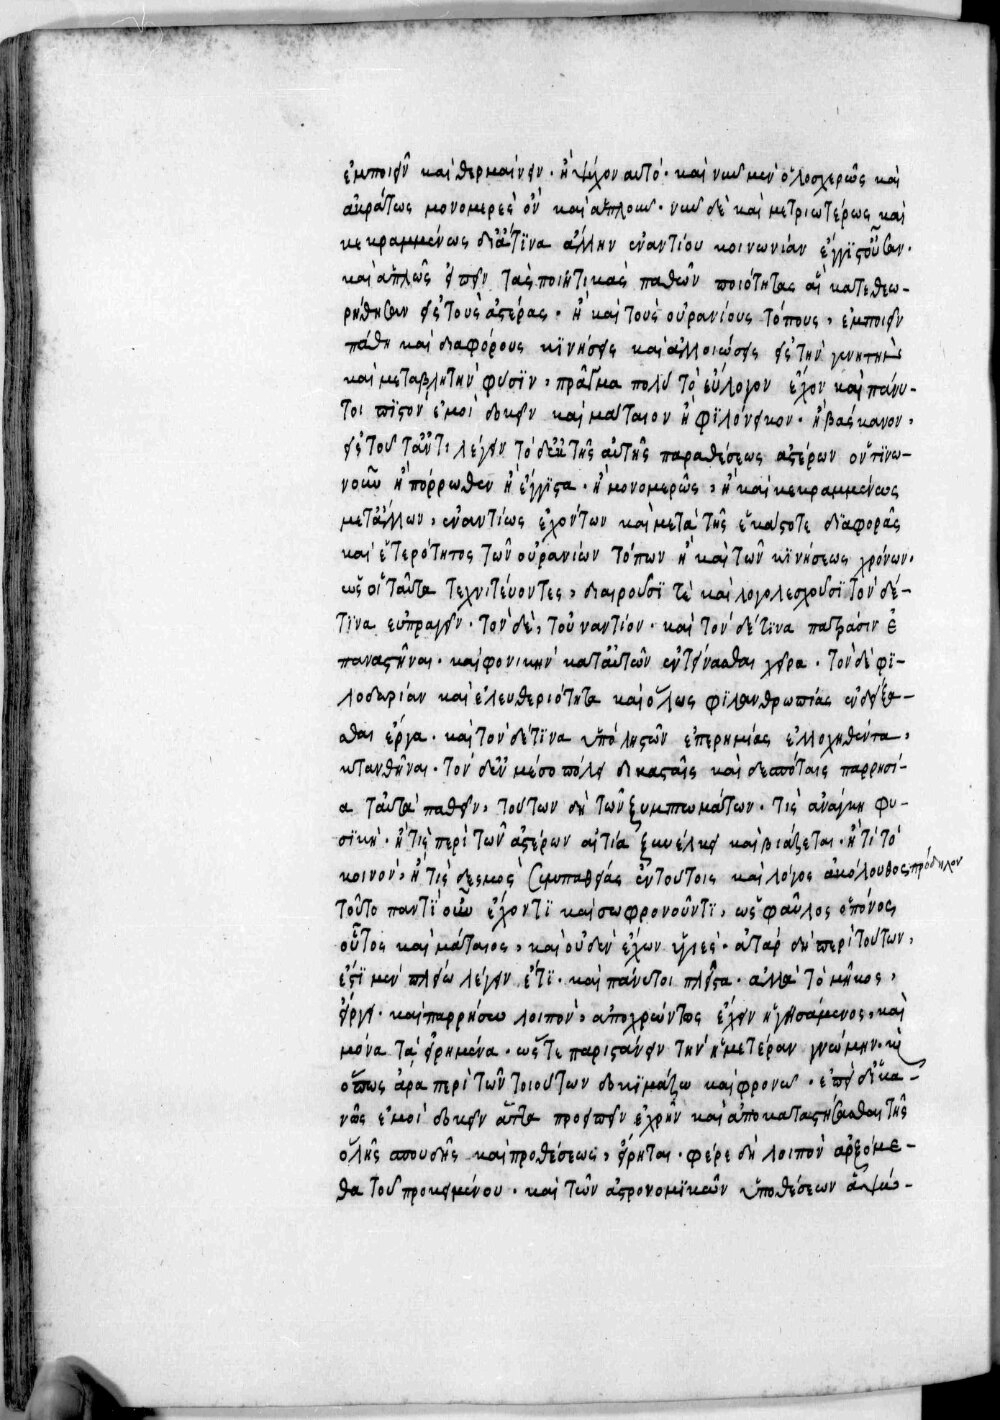 ἐμποιεῖν καὶ θερμαίνειν · ἢ ψύχον αυτό · καὶ νῦν μὲν ὁλοσχερῶς καὶ
ἀκράτως μονομερὲς ὂν καὶ ἁπλοῦν · νῦν δὲ καὶ μετριωτέρως καὶ
κεκραμμένως διάτινα ἄλλην ἐναντίου κοινωνίαν ἐγγίζουσαν ·
καὶ ἁπλῶς εἰπεῖν τὰς ποιητικὰς παθῶν ποιότητας αἳ κατεθεω-
ρήθησαν εἰς τοὺς ἀστέρας · ἢ καὶ τοὺς οὐρανίους τόπους, ἐμποιεῖν
πάθη καὶ διαφόρους κϊνήσεις καὶ ἀλλοιώσεις εἰς τὴν γεννητὴν
καὶ μεταβλητὴν φύσϊν, πρᾶγμα πολὺ τὸ εὔλογον ἔχον καὶ πάνυ-
τοι πϊστὸν ἐμοὶ δοκεῖν καὶ μάταιον ἢ φϊλόνεικον · ἢ βάσκανον,
εἰς τοῦτ' ἀντιλέγειν τὸ δ' ἐκ τῆς αὐτῆς παραθέσεως ἀστέρων οὕτϊνω-
νοῦν ἢ πόρρωθεν ἢ ἔγγιστα · ἢ μονομερῶς, ἢ καὶ κεκραμμένως
μετἄλλων, ἐναντίως ἐχόντων καὶ μετὰ τῆς ἑκάστοτε διαφορᾶς
καὶ ἑτερότητος τῶν οὐρανίων τόπων ἢ καὶ τῶν κϊνήσεως χρόνων,
ὡς οἱ ταῦτα τεχνιτεύοντες, διαιροῦσϊ τὲ καὶ λογολεσχοῦσϊ τὸν δέ-
τϊνα εὐπραγεῖν · τὸν δὲ, τοὐναντίον · καὶ τὸν δέτϊνα πατράσιν ἐ
παναστῆναι · καὶ φονικὴν κατ' αὐτῶν ἐντείνασθαι χεῖρα · τὸν δὲ φϊ-
λοδωρίαν καὶ ἐλευθεριότητα καὶ ὅλως φϊλανθρωπίας ἐνδείξα-
σθαι ἔργα · καὶ τὸν δέτϊνα ὑπὸ ληστῶν ἐπερημίας ἐλλοχηθέντα,
κτανθῆναι · τὸν δ' ἐν μέσο πόλει δικασταῖς καὶ δεσπόταις παρρησί-
α ταῦτα παθεῖν, τούτων δὴ τῶν ξυμπτωμάτων · τίς ἀνάγκη φυ-
σϊκὴ · ἢ τίς περὶ τῶν ἀστέρων αἰτία ξυνέλκει καὶ βιάζεται · ἢ τί τὸ
κοινὸν, ἢ τίς δεσμὸς συμπαθείας ἐν τούτοις καὶ λόγος ἀκόλουθος; πρόδηλον
τοῦτο παντὶ νοῦν ἔχοντϊ καὶ σωφρονοῦντϊ, ὡς φαῦλος ὁ πόνος
οὗτος καὶ μάταιος, καὶ οὐδὲν ἔχων ὑγιές · ἀτὰρ δὴ περὶ τούτων,
ἔστϊ μὲν πλείω λέγειν ἔτϊ · καὶ πάνυτοι πλεῖστα · ἀλλὰ τὸ μῆκος,
εἴργει · καὶ παρρήσω λοιπὸν, ἀποχρώντως ἔχειν ἡγησάμενος, καὶ
μόνα τὰ εἰρημένα · ὥστε παριστάνειν τὴν ἡμετέραν γνώμην · κὶ
ὅπως ἄρα περὶ τῶν τοιούτων δοκϊμάζω καὶ φρονῶ · ἐπεὶ δ' ἱκα-
νῶς ἐμοὶ δοκεῖν ἅττα προειπεῖν ἐχρῆν καὶ ἀποκαταστήσασθαι τῆς
ὅλης σπουδῆς καὶ προθέσεως, εἴρηται · φέρε δὴ λοιπὸν ἀρξόμε-
θα τοῦ προκειμένου · καὶ τῶν ἀστρονομϊκῶν ὑποθέσεων ἁψώ-